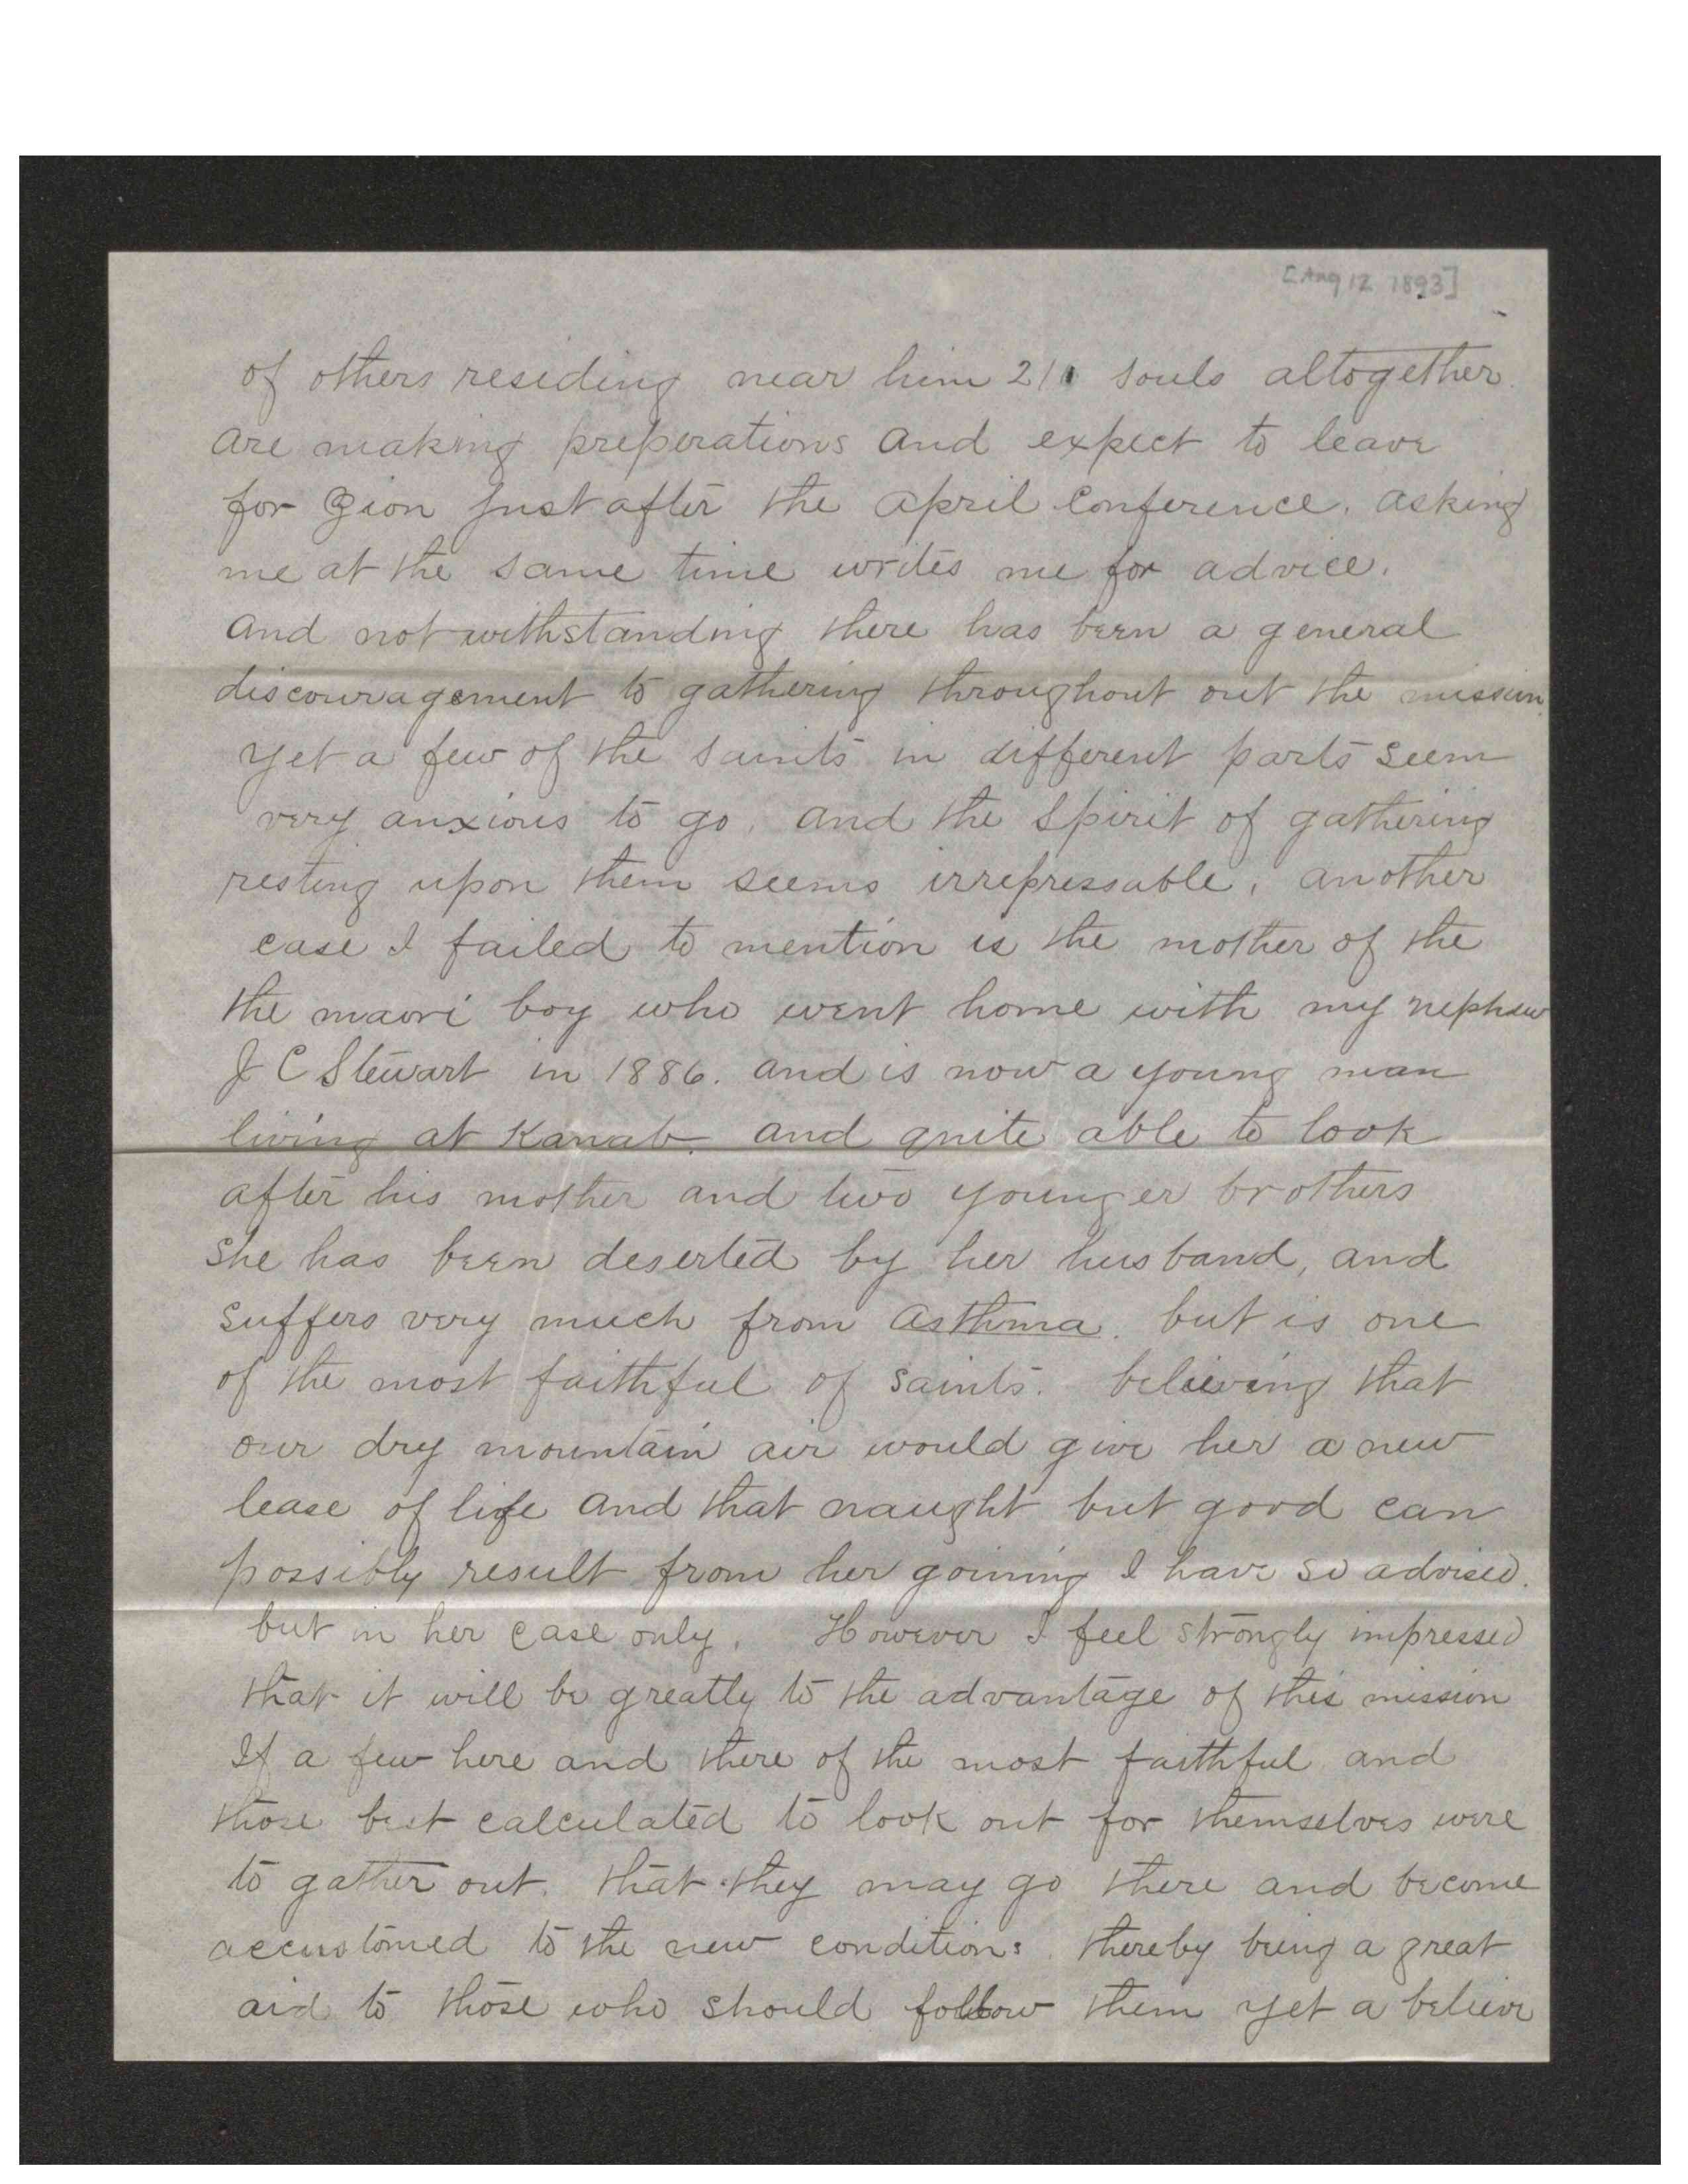 [Aug 12 1893]
of others residing near him 21 souls altogether.
are making preperations and expect to leave
for Zion just after the April Conference. asking
me at the same time writes me for advice.
and notwithstanding there has been a general
discouragement to gathering throughout out the mission
yet a few of the saints in different parts seem
very anxious to go. and the spirit of gathering
resting upon them seems irrepressable. another
case I failed to mention is the mother of the
the maori boy who went home with my nephew
J C Stewart in 1886. and is now a young man
living at Kanab. and quite able to look
after his mother and two younger brothers
She has been deserted by her husband, and
suffers very much from asthma. but is one
of the most faithful of saints. believing that
our dry mountain air would give her a new
lease of life and that naught but good can
possibly result from her goining I have so advised.
but in her case only. However I feel strongly impressed
that it will be greatly to the advantage of this mission
If a few here and there of the most faithful and
those best calculated to look out for themselves were
to gather out. that they may go there and become
accustomed to the new conditions. thereby being a great
aid to those who should follow them yet a believe